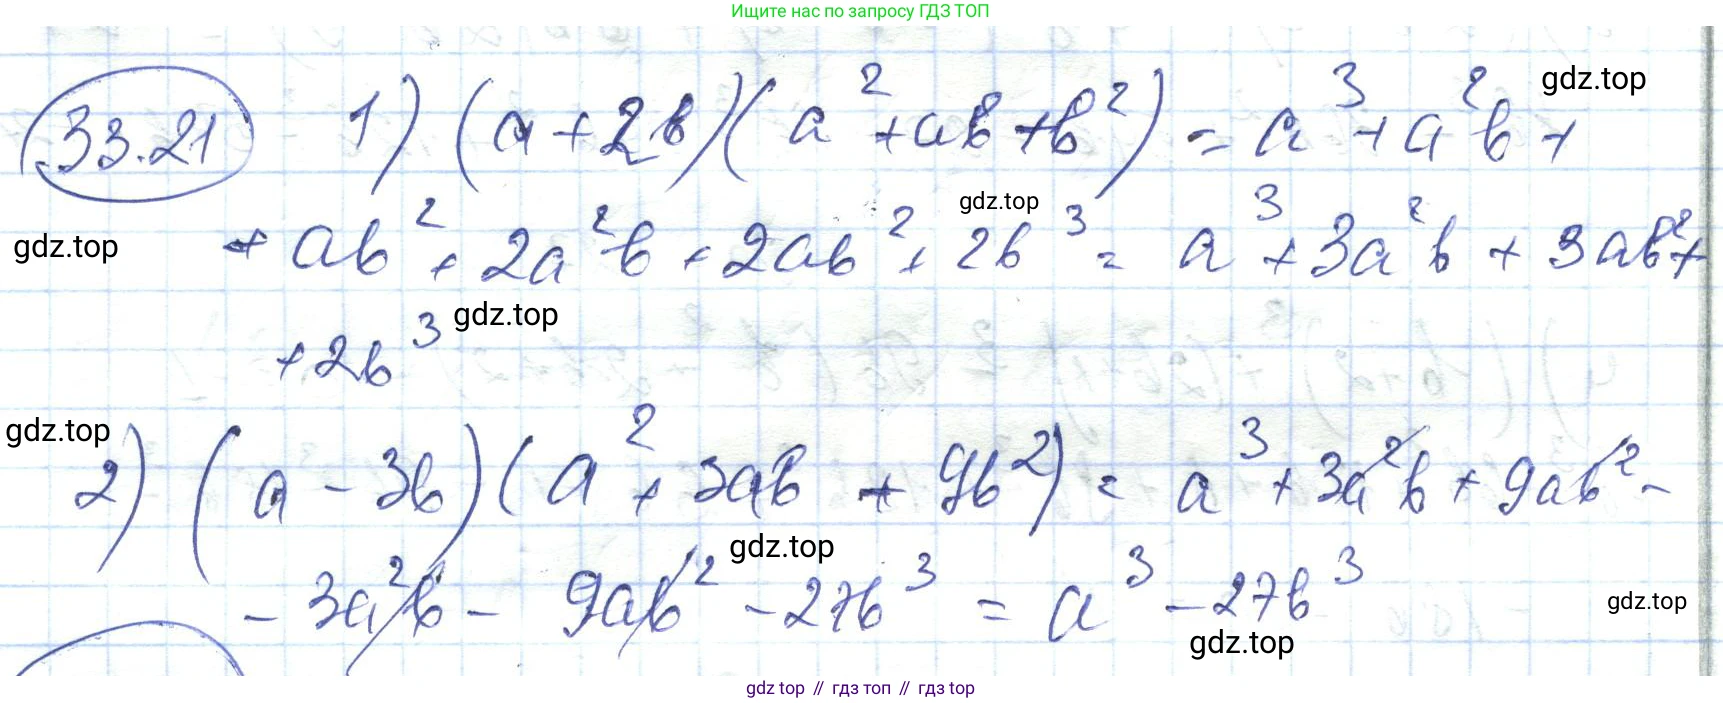 Ищите нас по запросу ГДЗ ТОП
33.21 1) (a+2b)(a²+ab+b²) = a³+a²b+
gdz.top
gdz.top
+ab²+2a²b+2ab²+2b³ = a³+3a²b+3ab²+
gdz.top
+2b³
gdz.top
gdz.top
2) (a-3b)(a²+3ab+9b²) = a³+3a²b+9ab²-
gdz.top
-3a²b-9ab²-27b³ = a³-27b³
gdz.top
gdz.top
gdz top // гдз топ // гдз top